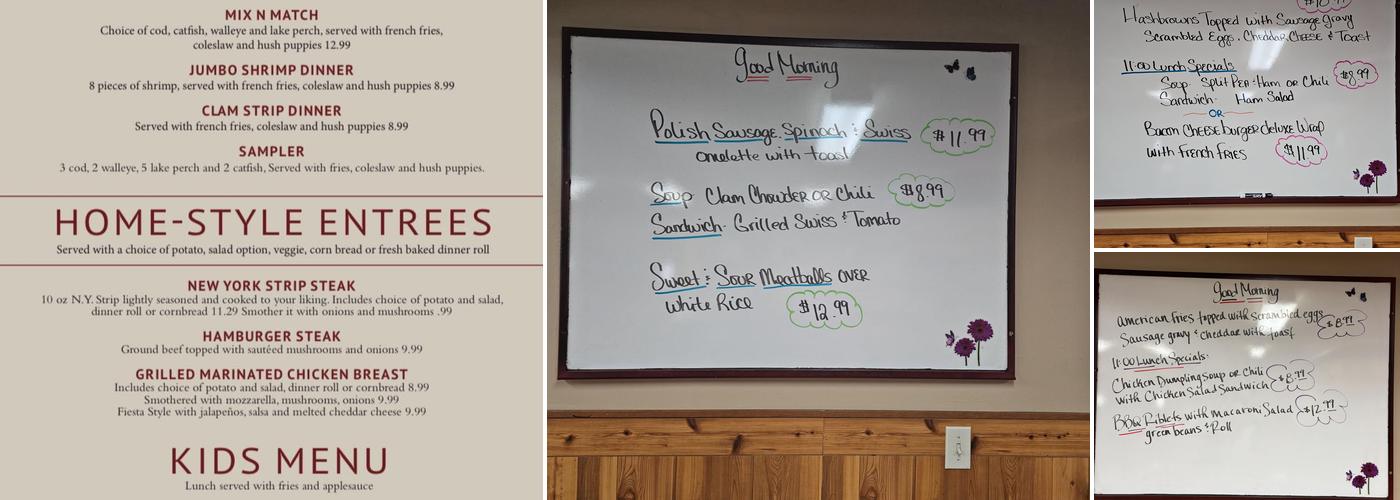 MIX N MATCH
Choice of cod, catfish, walleye and lake perch, served with french fries,
coleslaw and hush puppies 12.99
JUMBO SHRIMP DINNER
8 pieces of shrimp, served with french fries, coleslaw and hush puppies 8.99
CLAM STRIP DINNER
Served with french fries, coleslaw and hush puppies 8.99
SAMPLER
3 cod, 2 walleye, 5 lake perch and 2 catfish, Served with fries, coleslaw and hush puppies.
HOME-STYLE ENTREES
Served with a choice of potato, salad option, veggie, corn bread or fresh baked dinner roll
NEW YORK STRIP STEAK
10 oz N.Y. Strip lightly seasoned and cooked to your liking. Includes choice of potato and salad,
dinner roll or cornbread 11.29 Smother it with onions and mushrooms .99
HAMBURGER STEAK
Ground beef topped with sautéed mushrooms and onions 9.99
GRILLED MARINATED CHICKEN BREAST
Includes choice of potato and salad, dinner roll or cornbread 8.99
Smothered with mozzarella, mushrooms, onions 9.99
Fiesta Style with jalapeños, salsa and melted cheddar cheese 9.99
KIDS MENU
Lunch served with fries and applesauce
Good Morning
Polish Sausage, Spinach & Swiss $11.99
omelette with toast
Soup Clam Chowder OR Chili $8.99
Sandwich- Grilled Swiss & Tomato
Sweet & Sour Meatballs OVER
White Rice $12.99
Hashbrowns Topped with Sausage gravy
Scrambled Eggs, Cheddar CHEESE & Toast
11:00 Lunch Specials
Soup- Split PEA & Ham OR Chili $8.99
Sandwich- Ham Salad
OR
Bacon CHEESEburger deluxe Wrap
with French FRIES $11.99
Good Morning
american fries topped with scrambled eggs
Sausage gravy & cheddar with toast $8.99
11:00 Lunch Specials:
Chicken Dumpling Soup OR Chili
with Chicken Salad Sandwich $8.99
BBQ Riblets with macaroni Salad $12.99
green beans & Roll